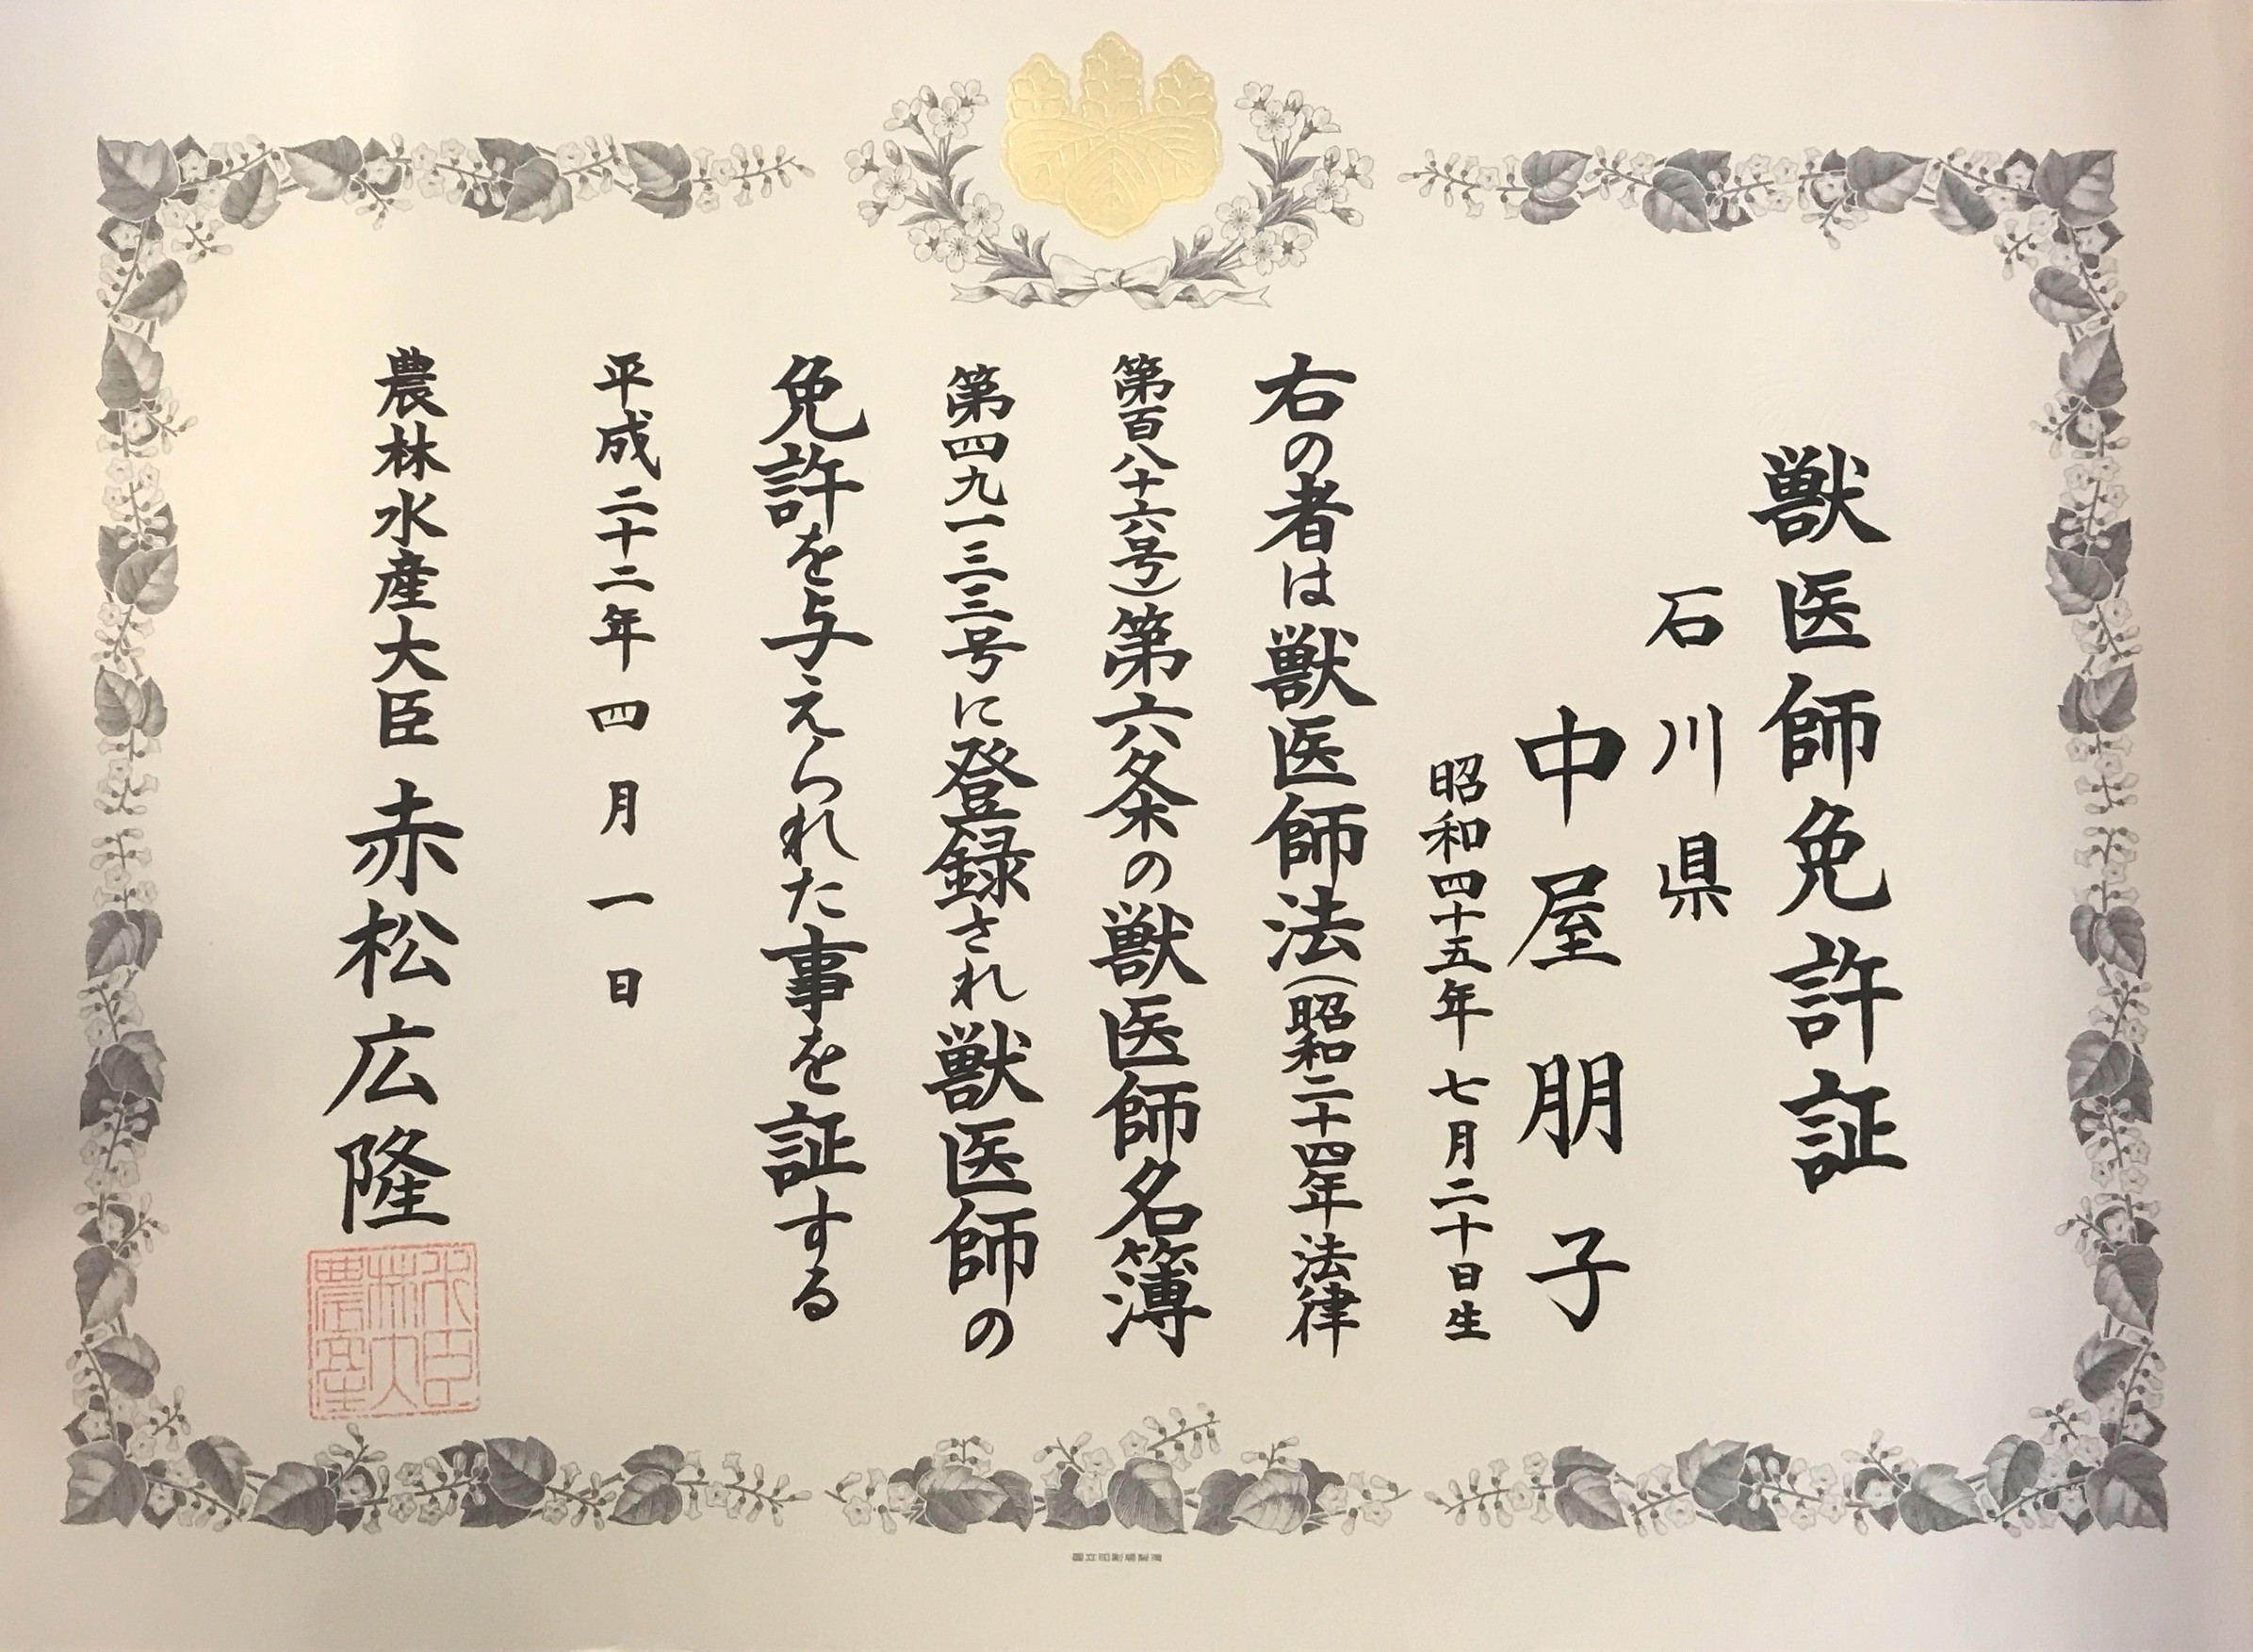 獣医師免許証
石川県
中屋朋子
昭和四十五年七月二十日生
右の者は獣医師法(昭和二十四年法律
第百八十六号)第六条の獣医師名簿
第四九一三三号に登録され獣医師の
免許を与えられた事を証する
平成二十二年四月一日
農林水産大臣 赤松広隆